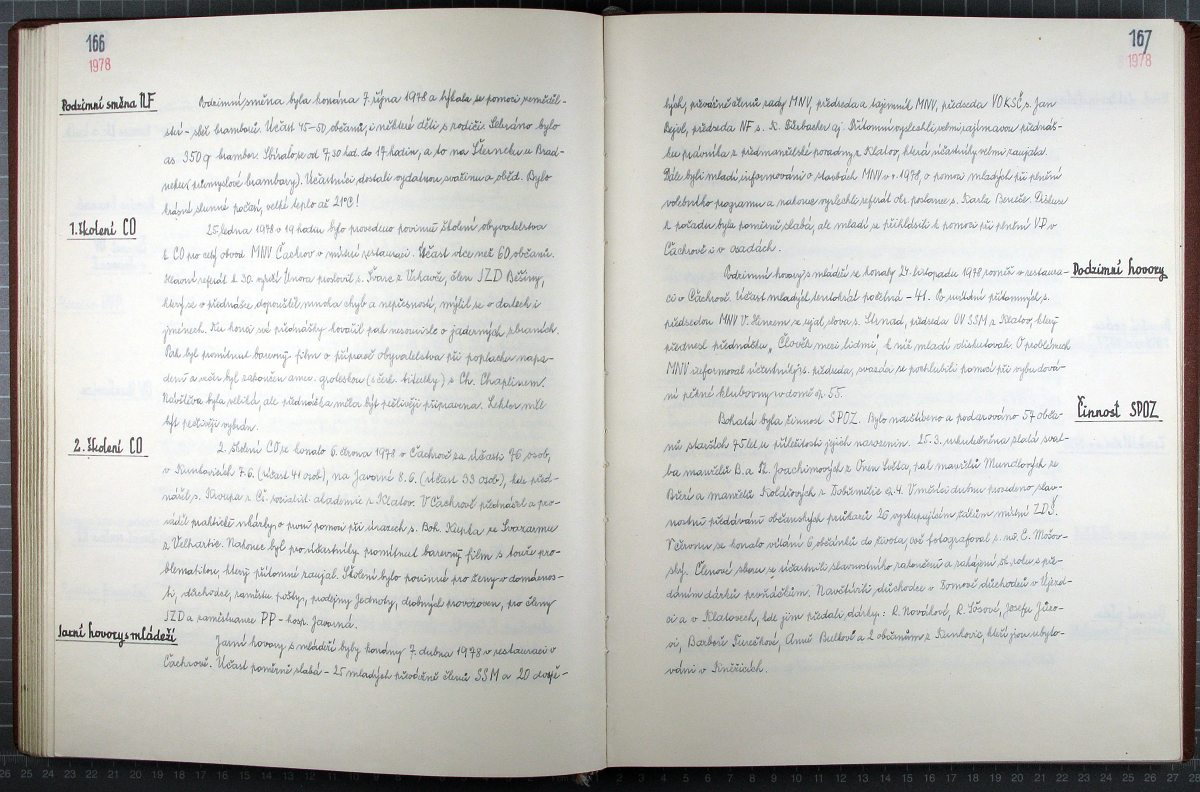 166
1978
Podzimní směna NF
Podzimní směna byla konána 7. října 1978 a týkala se pomoci zeměděl-
ství - sběr bramborů. Účast 45-50 občanů, i některé děti s rodiči. Sebráno bylo
as 350 q brambor. Sbíralo se od 7,30 hod. do 17 hodin, a to na Šterneku u Brad-
neku (průmyslové brambory). Účastníci dostali vydatnou svačinu a oběd. Bylo
krásné slunné počasí, velké teplo až 21°C!
1. školení CO
25. ledna 1978 v 19 hodin bylo provedeno povinné školení obyvatelstva
k CO pro celý obvod MNV Čachrov v místní restauraci. Účast více než 60 občanů.
Hlavní referát k 30. výročí Února proslovil s. Švarc z Vrhavče, člen JZD Běšiny,
který se v přednášce dopouštěl mnoha chyb a nepřesností, mýlil se v datech i
jménech. Ku konci své přednášky hovořil pak nesouvisle o jaderných zbraních.
Pak byl promítnut barevný film o přípravě obyvatelstva při poplachu napa-
dení a večer byl zakončen amer. groteskou (s česk. titulky) s Ch. Chaplinem.
Návštěva byla veliká, ale přednáška měla být pečlivěji připravena. Lektor měl
být pečlivěji vybrán.
2. školení CO
2. školení CO se konalo 6. června 1978 v Čachrově za účasti 76 osob,
v Kunkovicích 7.6. (účast 41 osob), na Javorné 8.6. (účast 33 osob), kde před-
nášel s. Kroupa z Čs. socialist. akademie z Klatov. V Čachrově přednášel a pro-
váděl praktické ukázky o první pomoci při úrazech s. Boh. Kupka ze Svazarmu
z Velhartic. Nakonec byl pro účastníky promítnut barevný film s touže pro-
blematikou, který přítomné zaujal. Školení bylo povinné pro ženy v domácnos-
ti, důchodce, zaměstn. pošty, prodejny Jednoty, drobných provozoven, pro členy
JZD a zaměstnance PP - hosp. Javorná.
Jarní hovory s mládeží
Jarní hovory s mládeží byly konány 7. dubna 1978 v restauraci v
Čachrově. Účast poměrně slabá - 25 mladých převážně členů SSM a 20 dospě-
167
1978
lých, převážně členů rady MNV, předseda a tajemník MNV, předseda VO KSČ s. Jan
Rejol, předseda NF s. K. aj. Přítomní vyslechli velmi zajímavou přednáš-
ku právníka z předmanželské poradny z Klatov, která účastníky velmi zaujala.
Dále byli mladí informováni o stavbách MNV v r. 1978, o pomoci mladých při plnění
volebního programu a nakonec vyslechli referát okr. poslance s. Karla Beneše. Diskuse
k pořadu byla poměrně slabá, ale mladí se přihlásili k pomoci při plnění VP v
Čachrově i v osadách.
Podzimní hovory
Podzimní hovory s mládeží se konaly 24. listopadu 1978 rovněž v restaura-
ci v Čachrově. Účast mladých tentokrát početná - 41. Po uvítání přítomných s.
předsedou MNV V. se ujal slova s. Strnad, předseda OV SSM z Klatov, který
přednesl přednášku „Člověk mezi lidmi", k níž mladí diskutovali. O problémech
MNV informoval účastníky s. předseda, svazáci se pochlubili pomocí při vybudová-
ní pěkné klubovny v domě čp. 55.
Činnost SPOZ
Bohatá byla činnost SPOZ. Bylo navštíveno a podarováno 57 obča-
nů starších 75 let u příležitosti jejich narozenin. 25.3. uskutečněna zlatá svat-
ba manželů B. a Št. Joachimových z Onen Světa, pak manželů Mundlových ze
Bízí a manželů Kolářových z Dobřemilic čp. 4. V měsíci dubnu provedeno slav-
nostní předávání občanských průkazů 26 vystupujícím žákům místní ZDŠ.
V červnu se konalo vítání 6 občánků do života, vše fotografoval s. uč. E. Mošov-
ský. Členové sboru se účastnili slavnostního zakončení a zahájení šk. roku s pře-
dáním dárků prvňáčkům. Navštívili důchodce v Domově důchodců v Újezd-
ci a v Klatovech, kde jim předali dárky: R. Novákové, R. Lišové, Josefu Jůzo-
vi, Barboře Turečkové, Anně Bulkové a 2 občanům z Kunkovic, kteří jsou ubyto-
váni v Kněžicích.